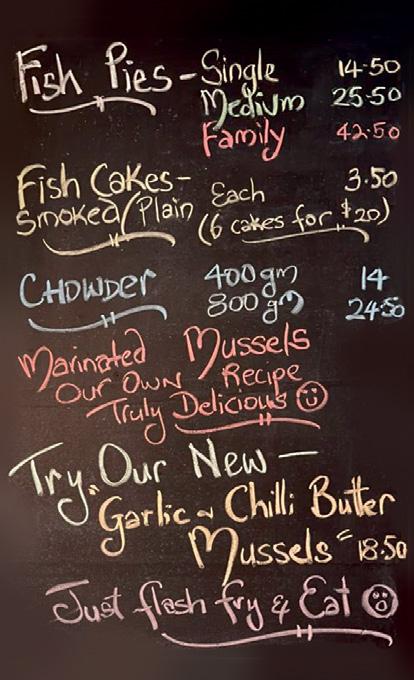 Fish Pies - Single 14.50
Medium 25.50
Family 42.50
Fish Cakes - Each 3.50
Smoked/Plain (6 cakes for $20)
CHOWDER 400gm 14
800gm 24.50
Marinated Mussels
Our Own Recipe
Truly Delicious
Try Our New -
Garlic ~ Chilli Butter
Mussels = 18.50
Just flash fry & Eat